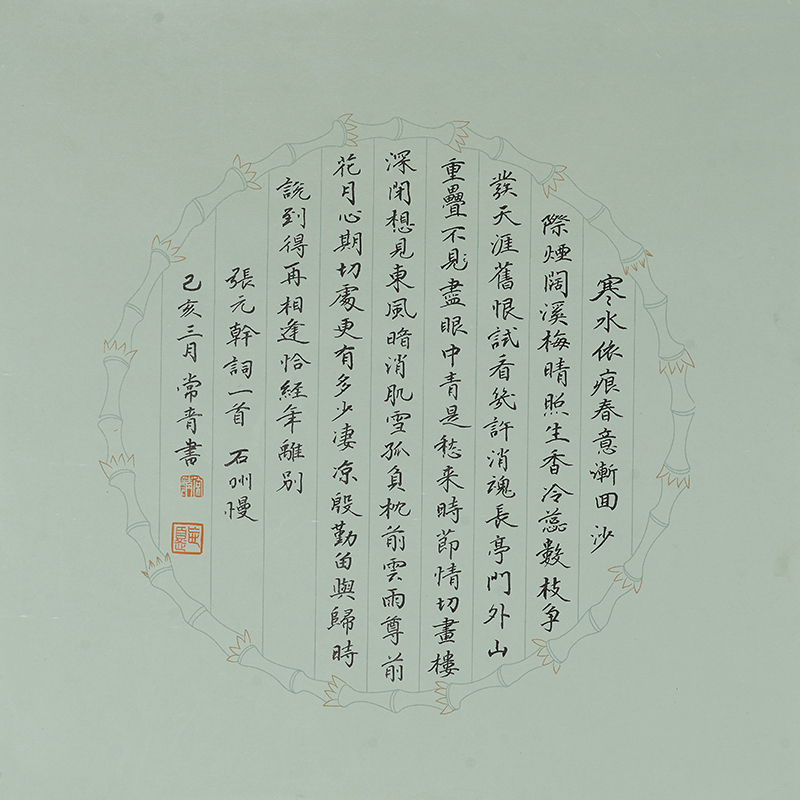 寒水依痕春意漸囬沙
際煙闊溪梅晴照生香冷蕊數枝爭
發天涯舊恨試看幾許消魂長亭門外山
重疊不見盡眼中青是愁来時節情切畫樓
深閉想見東風暗消肌雪孤負枕前雲雨尊前
花月心期切處更有多少淒涼殷勤留與歸時
說到得再相逢恰經年離別
張元幹詞一首 石州慢
己亥三月常青書